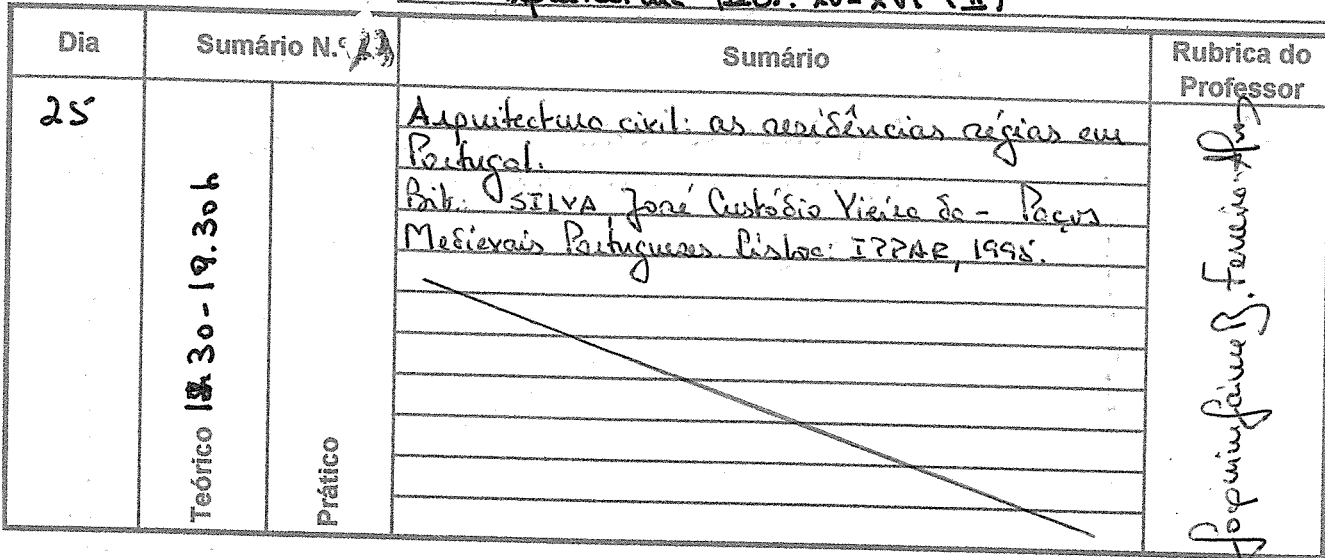 (Séc. XV-XVI) (II)
Dia
Sumário N.º
Sumário
Rubrica do
Professor
25
Teórico 30-19.30h
Prático
Arquitectura civil: as residências régias em
Portugal.
Bib.: SILVA José Custódio Vieira da - Paços
Medievais Portugueses. Lisboa: IPPAR, 1995.
Joaquim Jaime B. Ferreira-Alves